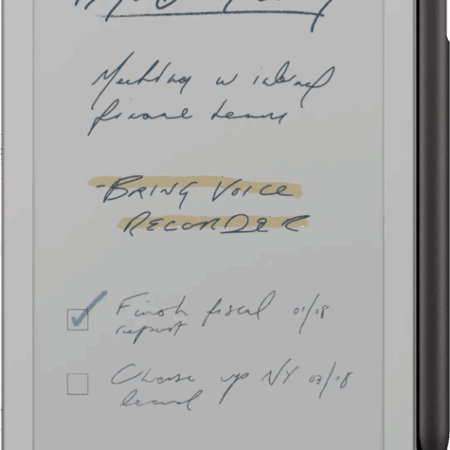 Meeting w
finance team
-BRING VOICE
RECORDER
Finish fiscal 01/08
report
Chase up NY 03/08